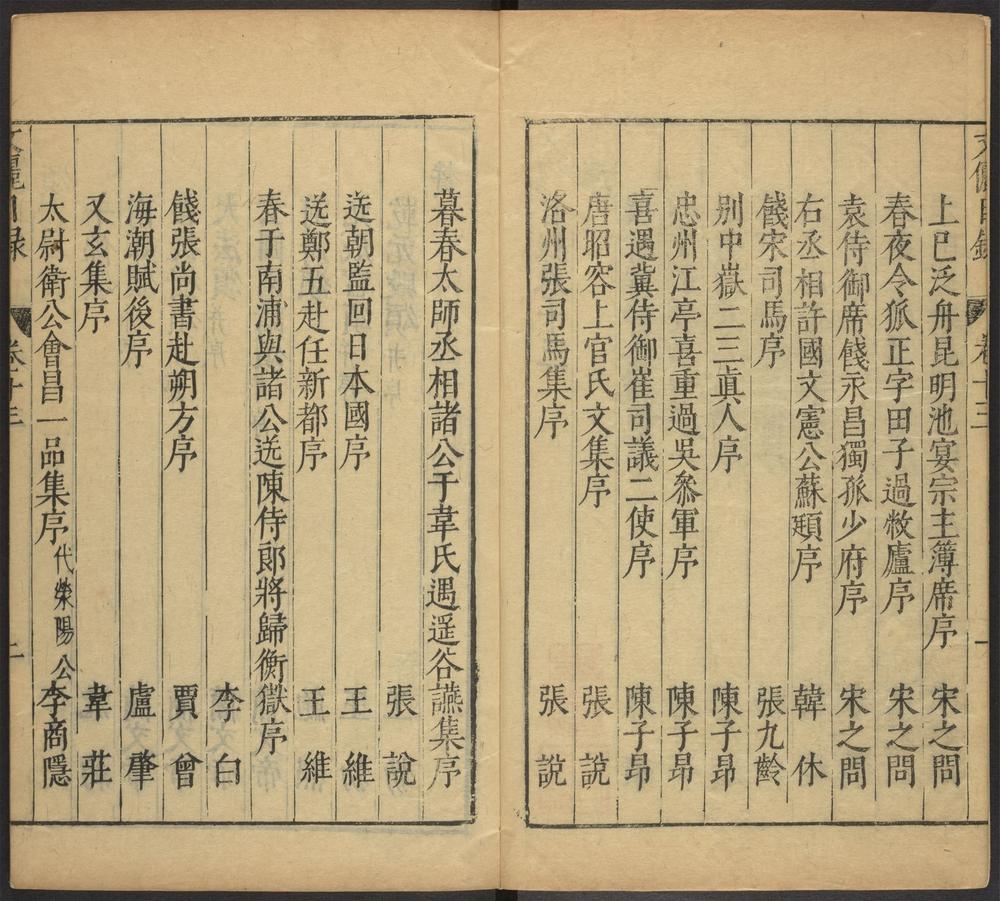 上巳泛舟昆明池宴宗主簿席序 宋之問
春夜令狐正字田子過敝廬序 宋之問
袁侍御席餞永昌獨孤少府序 宋之問
右丞相許國文憲公蘇頲序 韓休
餞宋司馬序 張九齡
别中嶽二三眞人序 陳子昂
忠州江亭喜重過吳叅軍序 陳子昂
喜遇冀侍御崔司議二使序 陳子昂
唐昭容上官氏文集序 張說
洛州張司馬集序 張說
暮春太師丞相諸公于韋氏遇遥谷讌集序
張說
送朝監回日本國序 王維
送鄭五赴任新都序 王維
春于南浦與諸公送陳侍郎將歸衡嶽序
李白
餞張尚書赴朔方序 賈曾
海潮賦後序 盧肇
又玄集序 韋莊
太尉衛公會昌一品集序 代滎陽公 李商隱
卷十三
二